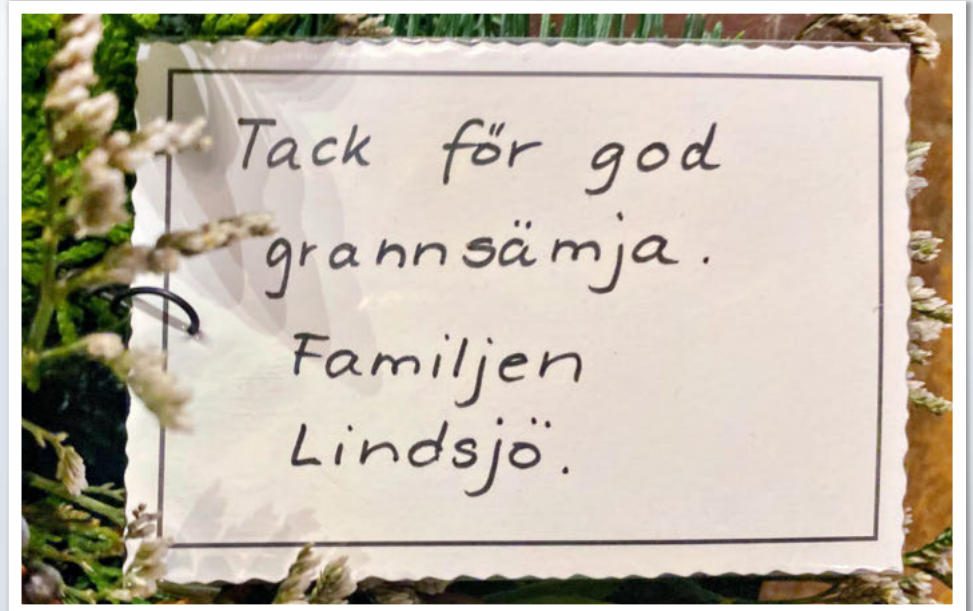 Tack för god
grannsämja.
Familjen
Lindsjö.